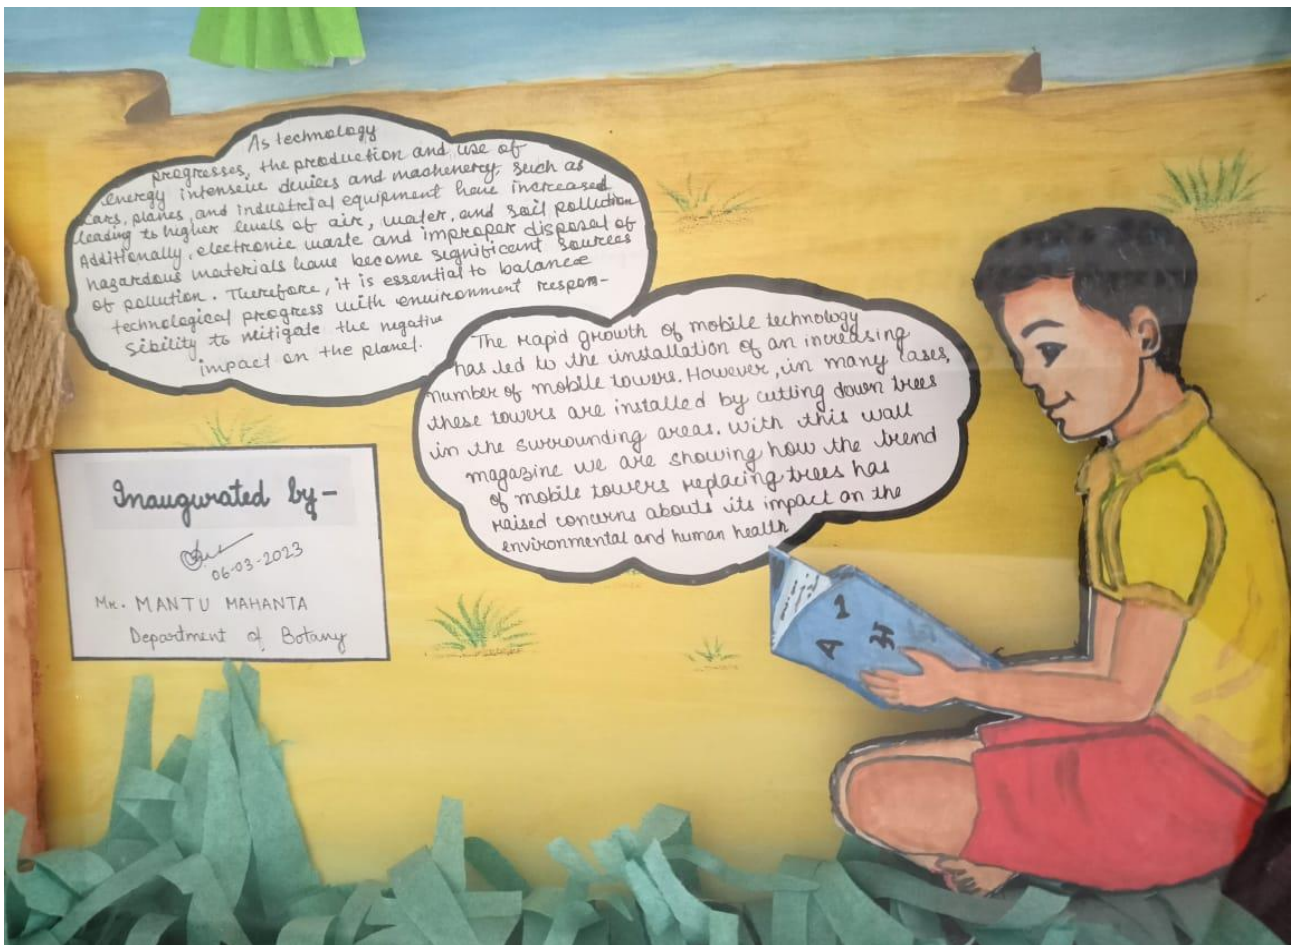 As technology
progresses, the production and use of
energy intensive devices and machenery, such as
cars, planes, and industrial equipment have increased
leading to higher levels of air, water, and soil pollution
Additionally, electronic waste and improper disposal of
hazardous materials have become significant sources
of pollution. Therefore, it is essential to balance
technological progress with environment respon-
sibility to mitigate the negative
impact on the planet.
The rapid growth of mobile technology
has led to the installation of an increasing
number of mobile towers. However, in many cases,
these towers are installed by cutting down trees
in the surrounding areas. With this wall
magazine we are showing how the trend
of mobile towers replacing trees has
raised concerns abouts its impact on the
environmental and human health
Inaugurated by-
06-03-2023
Mr. MANTU MAHANTA
Department of Botany